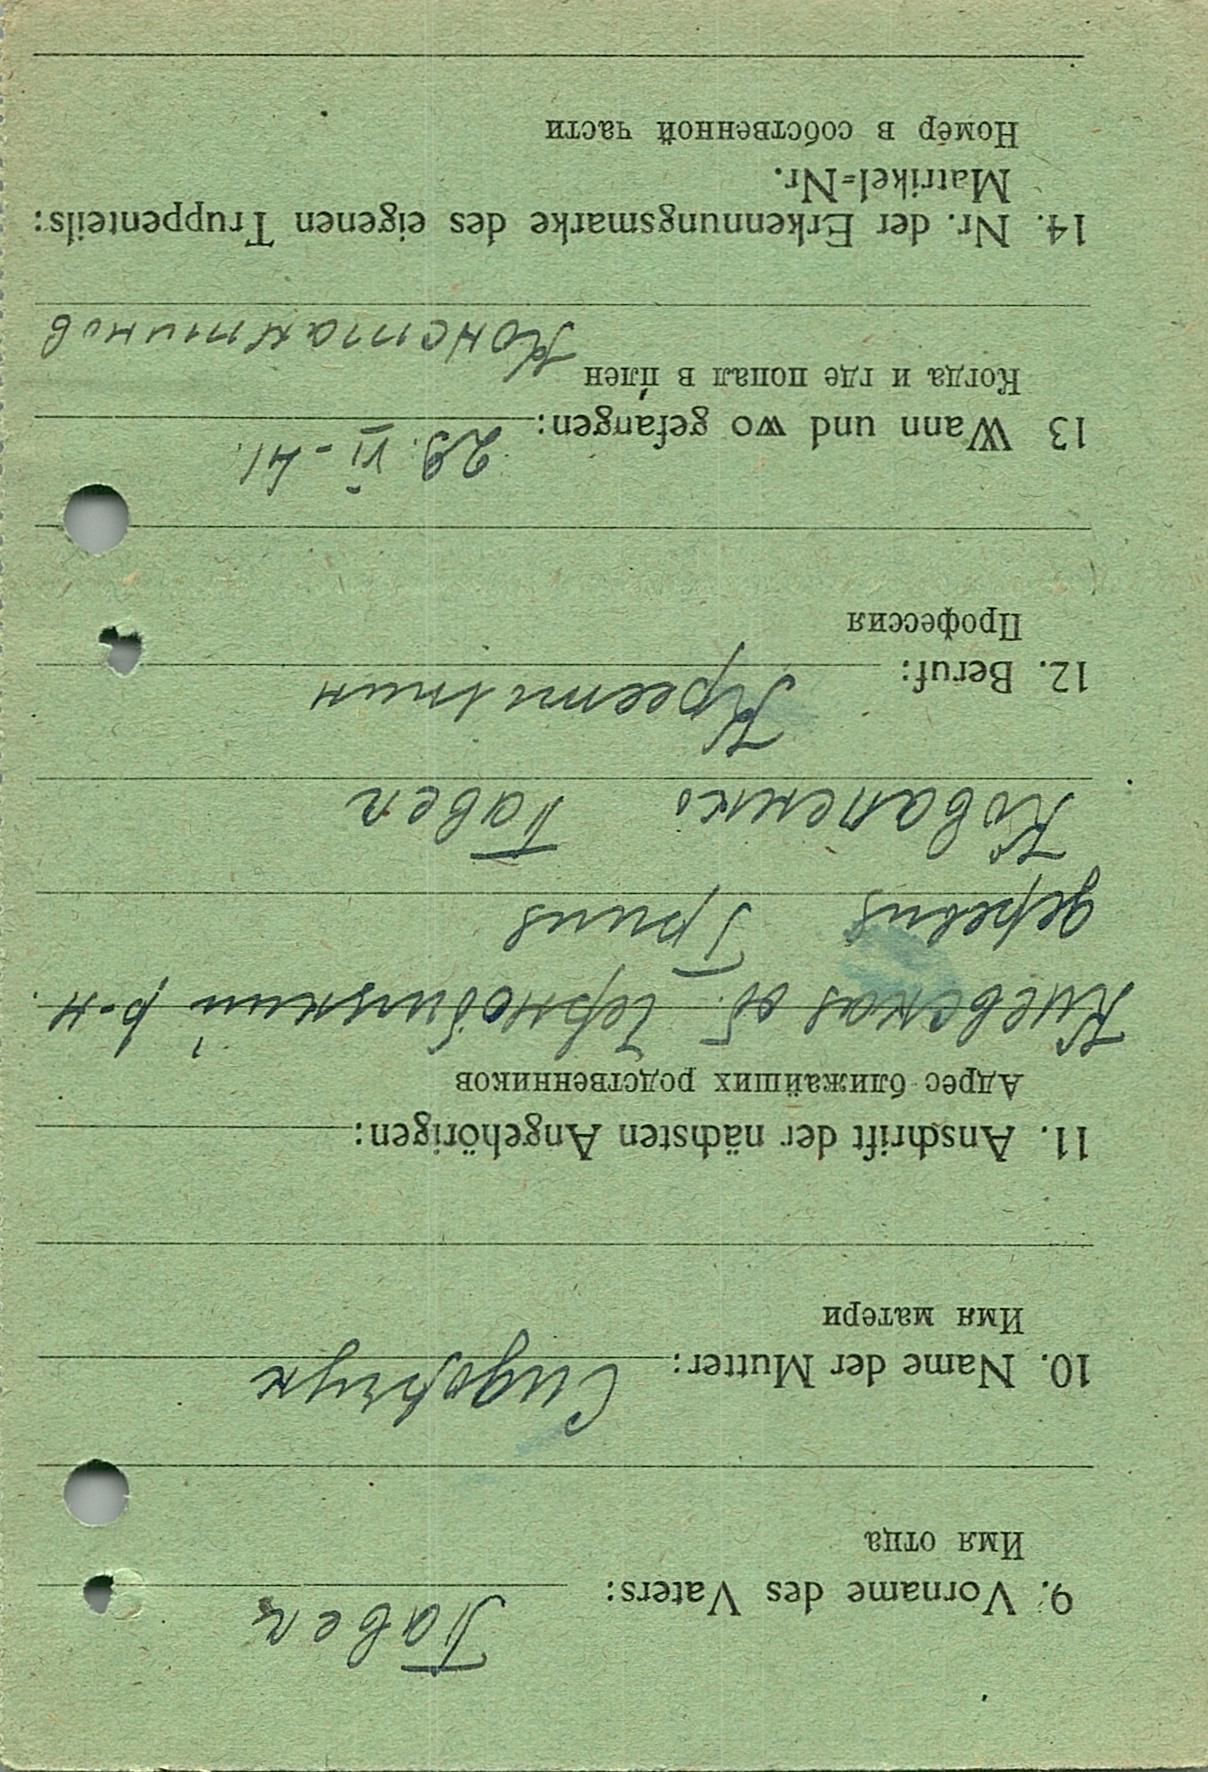 9. Vorname des Vaters: Павел
Имя отца
10. Name der Mutter: Сидорчук
Имя матери
11. Anschrift der nächsten Angehörigen:
Адрес ближайших родственников
Киевская об. Чернобильский р-н.
деревня
Коваленко Павел
12. Beruf: Крестьянин
Профессия
13 Wann und wo gefangen: 29. VI - 41.
Когда и где попал в плен Константинов
14. Nr. der Erkennungsmarke des eigenen Truppenteils:
Matrikel=Nr.
Номер в собственной части